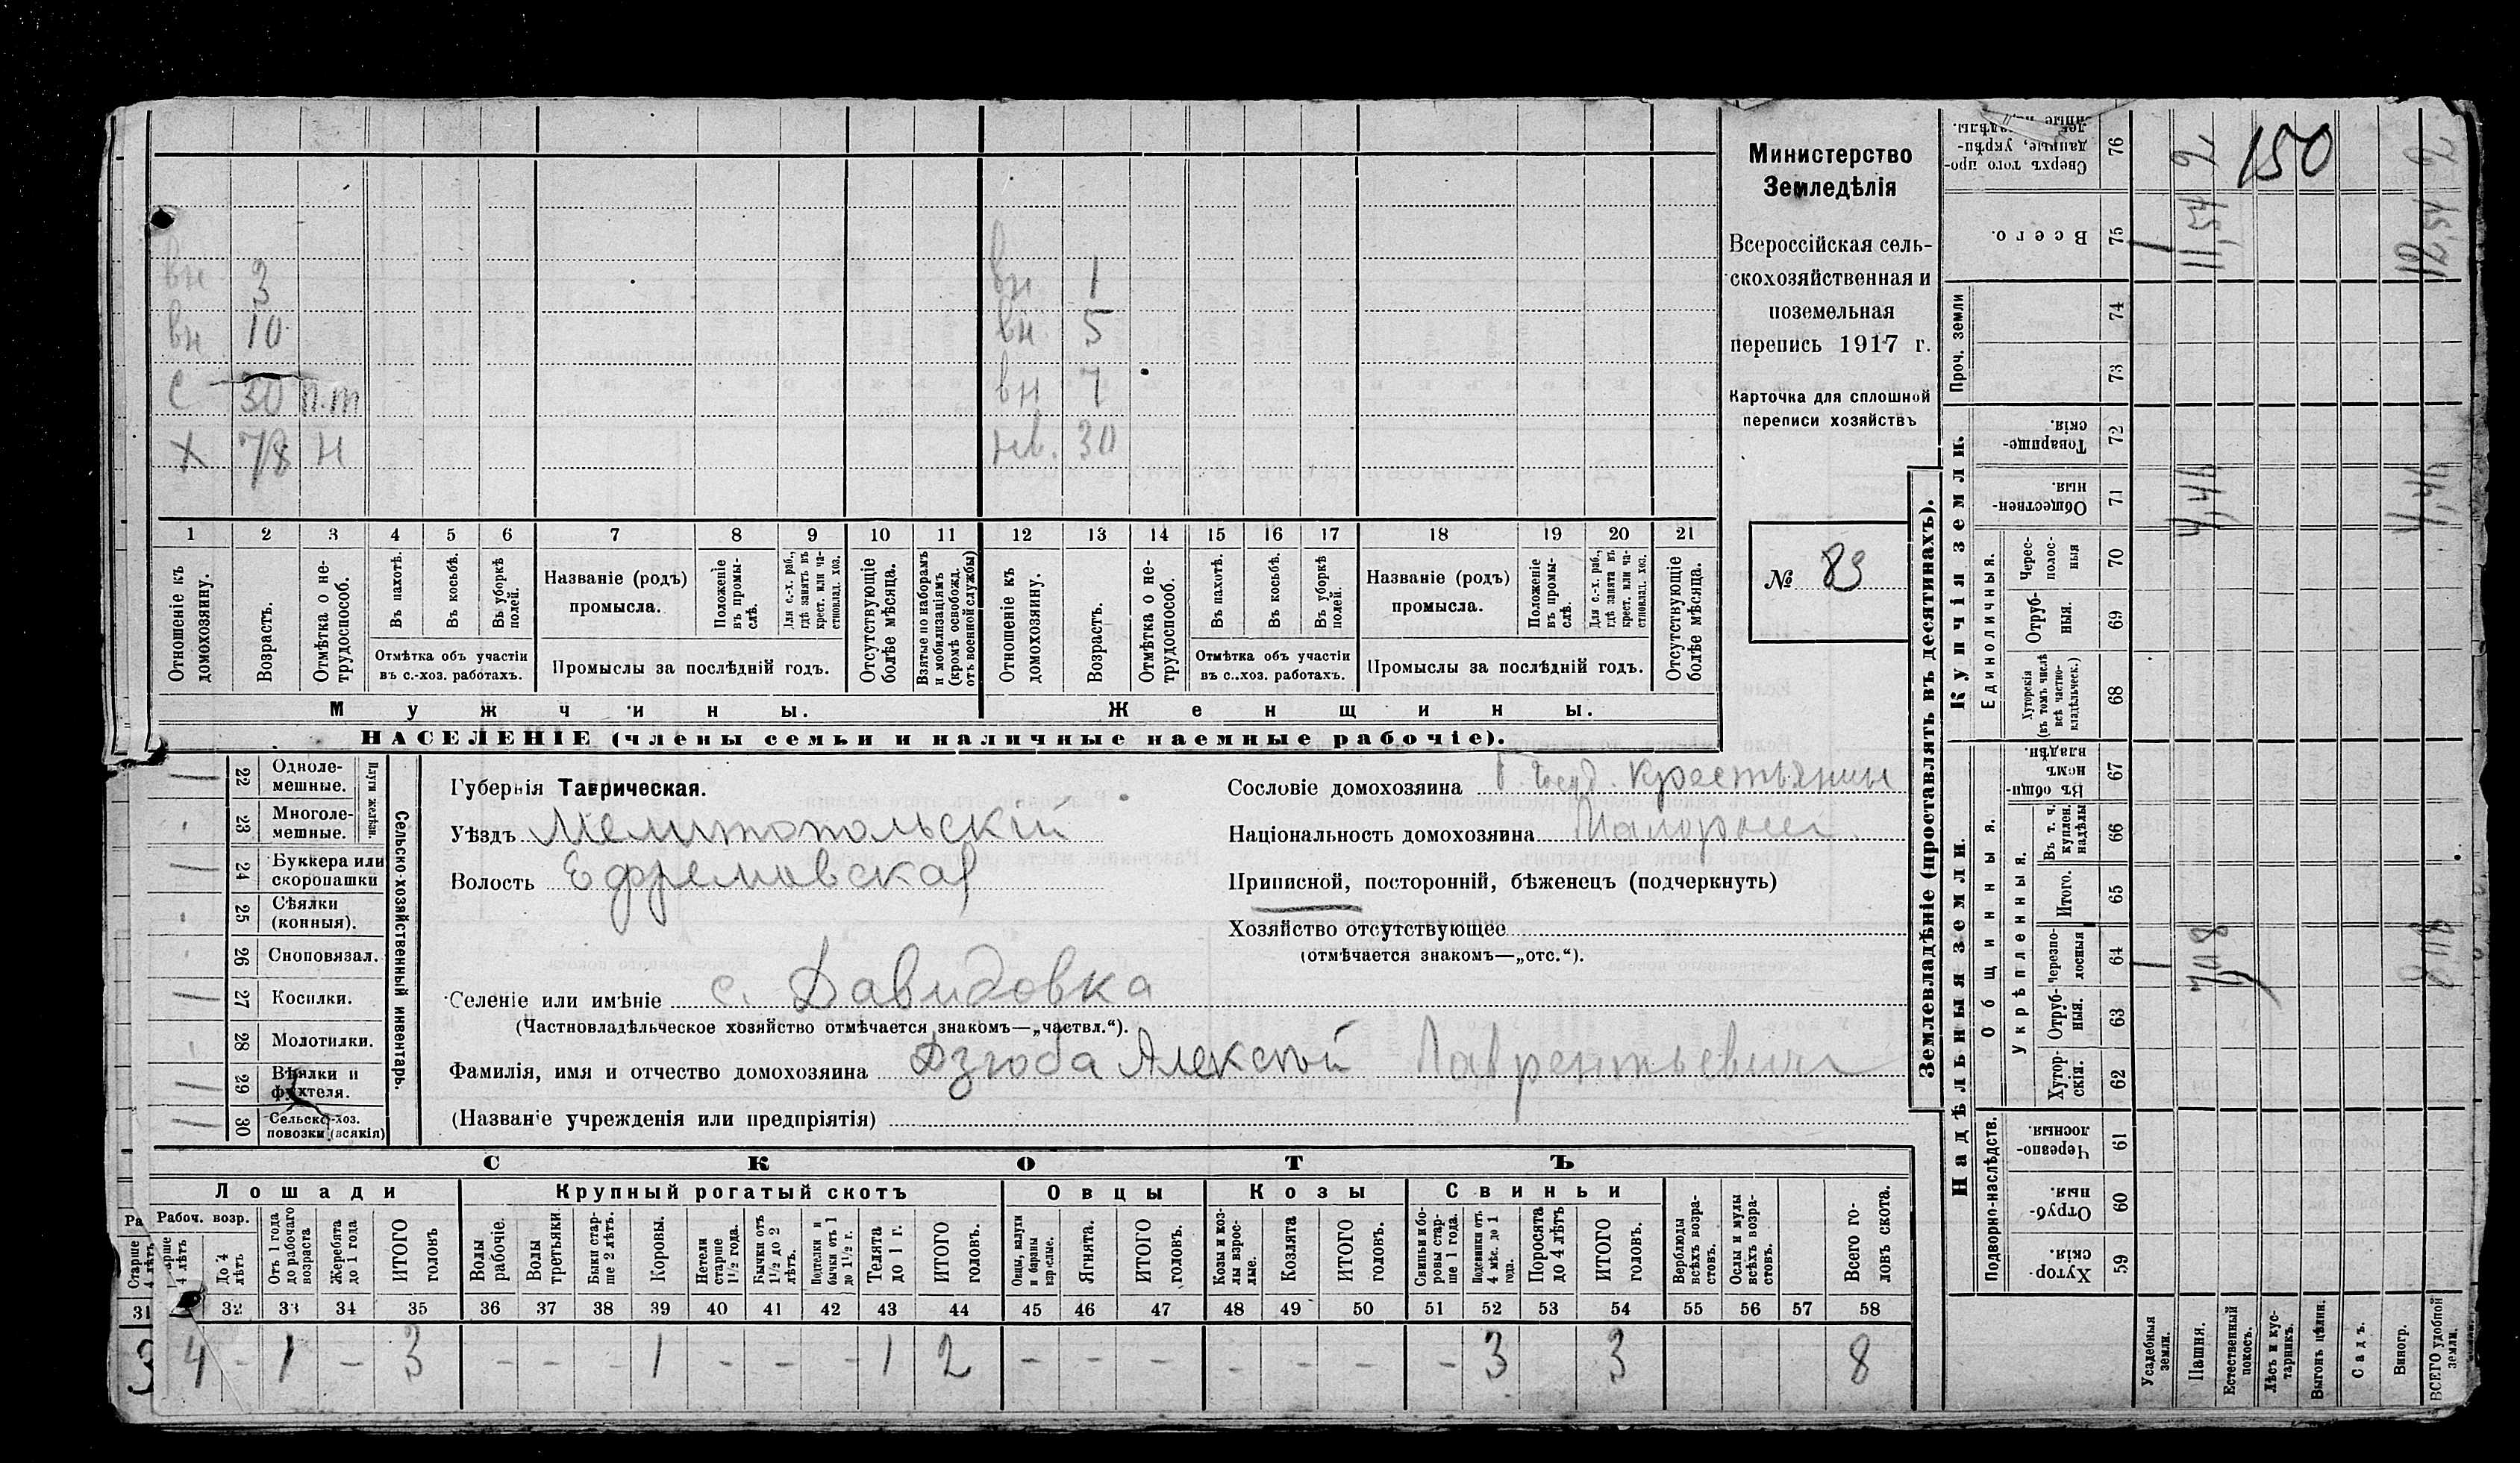 вн 3 вн 1
вн 10 вн. 5
с 30 п.т вн 7
х 78 н нв. 30
1 2 3 4 5 6 7 8 9 10 11 12 13 14 15 16 17 18 19 20 21
Отношеніе къ домохозяину.
Возрастъ.
Отмѣтка о нетрудоспособ.
Въ пахотѣ.
Въ косьбѣ.
Въ уборкѣ полей.
Отмѣтка объ участіи
въ с.-хоз. работахъ.
Названіе (родъ)
промысла.
Положеніе въ промыслѣ.
Для с.-х. раб., гдѣ занятъ въ крест. или частновлад. хоз.
Промыслы за послѣдній годъ.
Отсутствующіе болѣе мѣсяца.
Взятые по наборамъ и мобилизаціямъ (кромѣ освобожд. отъ военной службы)
Отношеніе къ домохозяину.
Возрастъ.
Отмѣтка о нетрудоспособ.
Въ пахотѣ.
Въ косьбѣ.
Въ уборкѣ полей.
Отмѣтка объ участіи
въ с..хоз. работахъ.
Названіе (родъ)
промысла.
Положеніе въ промыслѣ.
Для с.-х. раб., гдѣ занята въ крест. или частновлад. хоз.
Промыслы за послѣдній годъ.
Отсутствующіе болѣе мѣсяца.
Мужчины. Женщины.
НАСЕЛЕНІЕ (члены семьи и наличные наемные рабочіе).
Министерство
Земледѣлія
Всероссійская сель-
скохозяйственная и
поземельная
перепись 1917 г.
Карточка для сплошной
переписи хозяйствъ
№ 83
Сельско-хозяйственный инвентарь.
Плуги желѣзн.
22 Одноле-
мешные.
23 Многоле-
мешные.
24 Буккера или
скоропашки
25 Сѣялки
(конныя).
26 Сноповязал.
27 Косилки.
28 Молотилки.
29 Вѣялки и
фухтеля.
30 Сельско-хоз.
повозки (всякія)
Губернія Таврическая.
Уѣздъ Мелитопольскій
Волость Ефремовская
Селеніе или имѣніе с. Давидовка
(Частновладѣльческое хозяйство отмѣчается знакомъ—„частвл.“).
Фамилія, имя и отчество домохозяина Дзюба Алексѣй Лаврентьевич
(Названіе учрежденія или предпріятія)
Сословіе домохозяина Крестьянин
Національность домохозяина Малоросс.
Приписной, посторонній, бѣженецъ (подчеркнуть)
Хозяйство отсутствующее
(отмѣчается знакомъ—„отс.“).
СКОТЪ
Лошади Крупный рогатый скотъ Овцы Козы Свиньи
Рабоч. возр.
Старше 4 лѣтъ
До 4 лѣтъ
Отъ 1 года до рабочаго возраста
Жеребята до 1 года
ИТОГО головъ
Волы рабочіе.
Волы третьяки.
Быки старше 2 лѣтъ.
Коровы.
Нетели старше 1½ года.
Бычки отъ 1½ до 2 лѣтъ.
Подтелки и бычки отъ 1 до 1½ г.
Телята до 1 г.
ИТОГО головъ.
Овцы, валухи и бараны взрослые.
Ягнята.
ИТОГО головъ.
Козы и козлы взрослые.
Козлята
ИТОГО головъ.
Свиньи и боровы старше 1 года.
Подсвинки отъ 4 мѣс. до 1 года.
Поросята до 4 лѣтъ
ИТОГО головъ.
Верблюды всѣхъ возрастовъ.
Ослы и мулы всѣхъ возрастовъ.
Всего головъ скота.
31 32 33 34 35 36 37 38 39 40 41 42 43 44 45 46 47 48 49 50 51 52 53 54 55 56 57 58
3 4 - 1 - 3 - - - 1 - - - 1 2 - - - - - - - 3 3 8
Землевладѣніе (проставлять въ десятинахъ).
Надѣльныя земли. Купчія земли.
Подворно-наслѣдств.
Общинныя.
Укрѣпленныя.
Единоличныя.
Проч. земли
59 Хуторскія
60 Отрубныя.
61 Черезполосныя.
62 Хуторскія.
63 Отрубныя.
64 Черезполосныя
65 Итого.
66 Въ т. ч. куплен. надѣлы
67 Въ общинномъ владѣн.
68 Хуторскія (въ томъ числѣ всѣ частновладѣльческ.)
69 Отрубныя.
70 Чересполосныя
71 Общественныя.
72 Товарищескія.
73
74
75 Всего.
76 Сверхъ того проданные, укрѣп-
Усадебныя земли.
Пашня.
Естественный покосъ.
Лѣсъ и кустарникъ.
Выгонъ цѣлин.
Садъ.
Виногр.
ВСЕГО удобной земли.
7,08
8,08
4,46
4,46
11,54
12,54
2
150
2